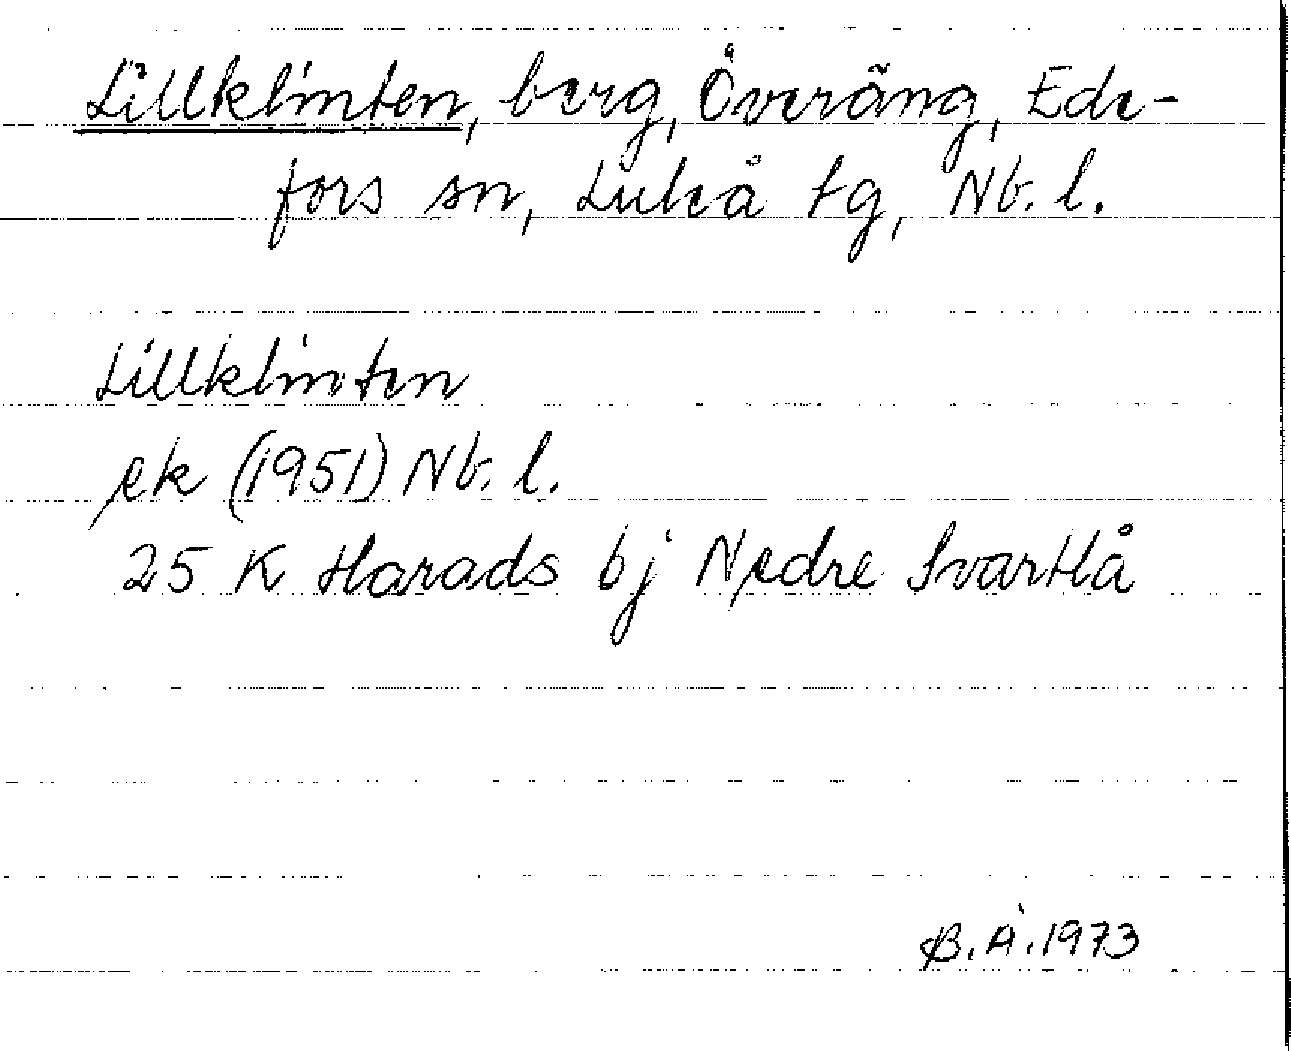 Lillklinten, berg, Överäng, Ede-
fors sn, Luleå tg, Nb. l.
Lillklinten
ek (1951) Nb. l.
25 K Harads bj Nedre Svartlå
B.Å.1973